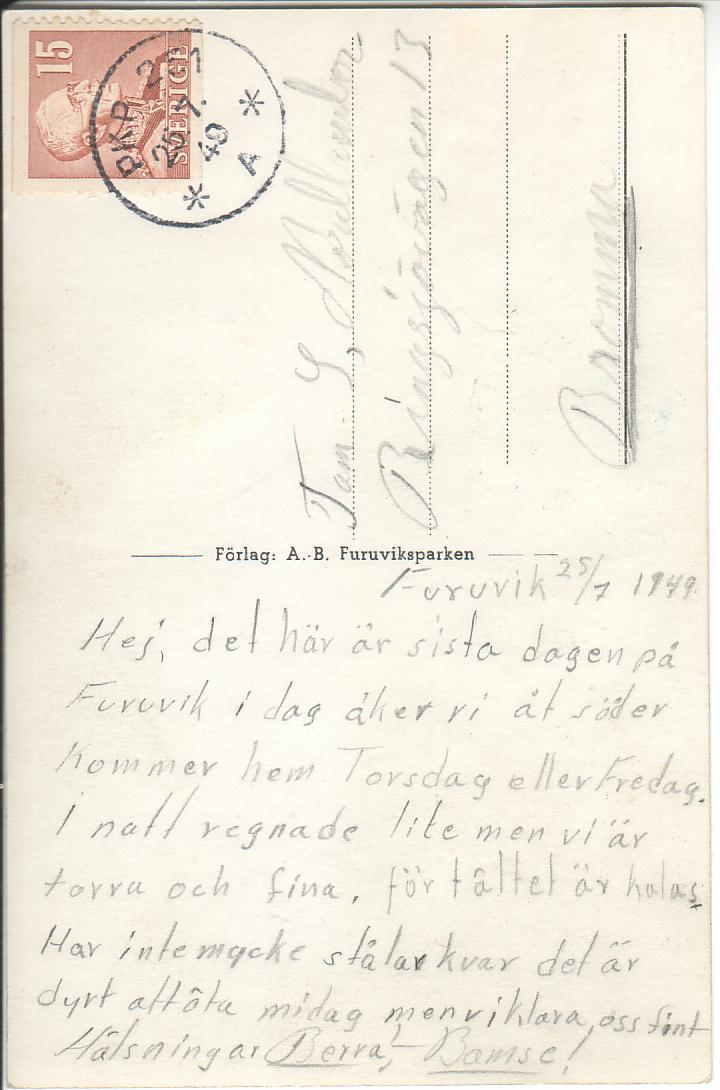 15
SVERIGE
PKP 201
25.7.
49
A
Fam. S,
Ringsjövägen 13
Bromma
Förlag: A.-B. Furuviksparken
Furuvik 25/7 1949
Hej, det här är sista dagen på
Furuvik i dag åker vi åt söder
Kommer hem Torsdag eller Fredag.
I natt regnade lite men vi är
torra och fina, för tältet är
Har inte mycke stålar kvar det är
dyrt att äta midag men vi klara, oss fint
Hälsningar Berra, - Bamse!